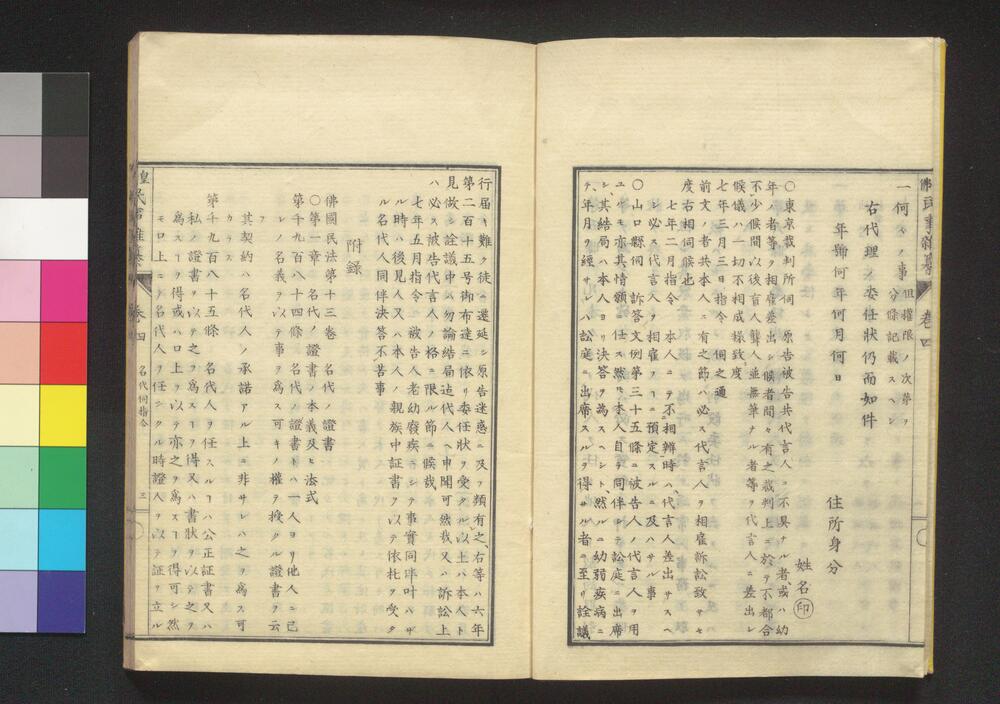 一何々ノ事 但權限ノ次第ヲ分條記載スヘシ
右代理ノ委任状仍而如件
年號何年何月何日
住所身分
姓名印
○東京裁判所伺 原告被告共代言人ニ不具ナル者、或ハ幼
年ノ者等ヲ相雇差出シ候者間々有之裁判上ニ於テ不都合
不少候間以後盲人聾人並無筆ナル者等ヲ代言人ニ差出シ
候儀ハ一切不相成様致度
七年三月三日指令 伺之通
前文ノ者共本人ニ有之節ハ必ス代言人ヲ相雇訴訟致サセ
度右相伺候也
七年二月指令 本人ニテ不相辨時ハ代言人差出サスヘ
シ必ス代言人ヲ相雇フヿニ預定スルニ及ハサル事
○山口縣伺 訴答文例第三十五條ニ被告人ノ代言人ヲ用
ユルモ亦其情願ニ任ス然レ𪜈本人自ラ同伴シテ訟庭ニ出席
シ、其結局ハ本人ヨリ決答ヲ為スヘシト、然ルニ幼弱疾病ニ
テ、年月ヲ經サレハ訟庭ニ出席スルヲ得サル者ニ至リ詮議
行届キ難ク徒ニ遷延シ原告迷惑ニ及フ類有之右等ハ六年
第二百十五号御布達ニ依リ委任状ヲ受クル以上ハ本人ト
見做シ詮議中ハ勿論結局迠代人ヘ申聞可然哉又ハ訴訟上
ハ必ス被告代言人ノ格ニ限ル節ニ候哉
七年五月指令 被告人老幼癈疾ニシテ事實同伴叶ハザ
ル時ハ後見人又ハ本人ノ親族中証書ヲ以テ依托ヲ受タ
ル名代人同伴決答不苦事
附録
佛國民法第十三巻 名代ノ證書
○第一章 名代ノ證書ノ本義及ヒ法式
第千九百八十四條 名代ノ證書トハ一人ヨリ他人ニ己
レノ名義ヲ以テ事ヲ為ス可キノ權ヲ授クル證書ヲ云
フ
其契約ハ名代人ノ承諾アル上ニ非サレハ之ヲ為ス可
カラス
第千九百八十五條 名代人ヲ任スルヿハ公正証書又ハ
私ノ證書ヲ以テ之ヲ為スヿヲ得又ハ書状ヲ以テ之ヲ
為スヿヲ得或ハ口上ヲ以テ亦之ヲ為スヿヲ得可シ然
モ口上ニテ名代人ヲ任シタル時證人ヲ以テ証ヲ立ル
巻四
名代伺指令
三
巻四